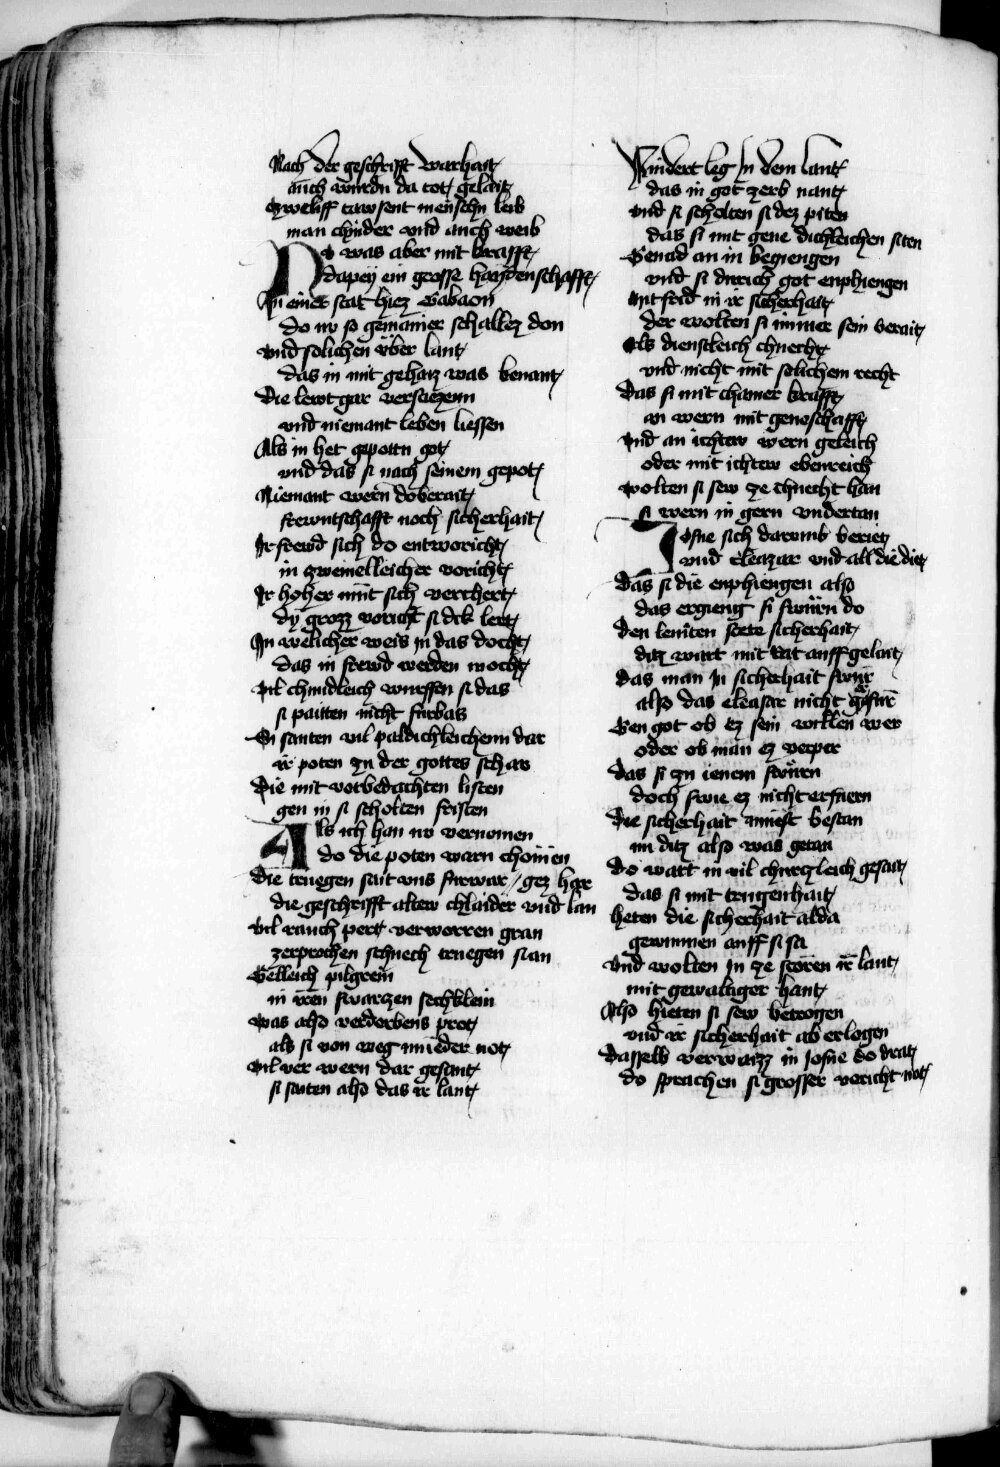 Nach der geschrifft warhait
auch wurdn da tot gelait
Czweliff tawsent menschn leib
man chinder vnd auch weib
Nv was aber mit krafft
dapey ein grosse haydenschafft
In einer stat hiez Gabaon
do nv so gemainer schallez don
vnd solichen vber lant
das in mit gehaiz was benant
Die lewt gar verstiezenn
vnd niemant leben liessen
Als in het gepottn got
vnd das si nach seinem gepot
Niemant wern doberait
frewntschafft noch sicherhait
Ir frewd sich do entworicht
in zweinelleicher voricht
Ir hoher mut sich verchert
dy grozz voricht si dik lert
In welicher weis in das docht
das in frewd werden mocht
Vil chundleich wurffen si das
si paitten nicht furbas
Si santen vil paldichleichenn dar
ir poten zu der gottes schar
Die mit vorbedachten listen
gen in si scholten fristen
Als ich han nv vernomen
do die poten warn chomen
Die truegen sait vns furwar / gez har
die geschrifft altew chlaider vnd lan
Vil rauch pert verworren gran
zerprochen schuech truegen si an
Gelleich pilgreim
in iren swarczen sechklein
Was also verdorbens prot
als si von weg mueder not
Vil ver wern dar gesant
si saiten also das ir lant
Nindert leg in dem lant
das in got zerb nant
vnd si scholten si dez piten
das si mit gene dichleichen siten
Genad an in begiengen
vnd si durich got enphiengen
Mit frid in ir sicherhait
der wolten si immer sein berait
Als dienstleich chnecht
vnd nicht mit solichem recht
Das si mit chainer krafft
an wern mit genoschafft
Vnd an ichtew wern geleich
oder mit ichtew ebenreich
wolten si sew ze chnecht han
si wern in gern vndertan
Josue sich darumb beriet
vnd Eleazar vnd all die diet
Das si die enphiengen also
das ergieng si swurn do
Den leuten stete sicherhait
ditz wart mit rat auff gelait
Das man in sicherhait swur
also das eleasar nicht erfur
Gen got ob ez sein willen wer
oder ob man ez verper
Das si zu ienem swuren
doch swie ez nicht erfuern
Die sicherhait muest bestan
nu ditz also was getan
Do wart in vil churczleich gesait
das si mit trugenhait
heten die sicherhait alda
gewunnen auff si sa
Vnd wolten in ze storen ir lant
mit gewaltiger hant
Also hieten si sew betrogen
vnd ir sicherhait ab erlogen
Dasselb verwaizz in Josue do drat
do sprachen si grosser voricht not